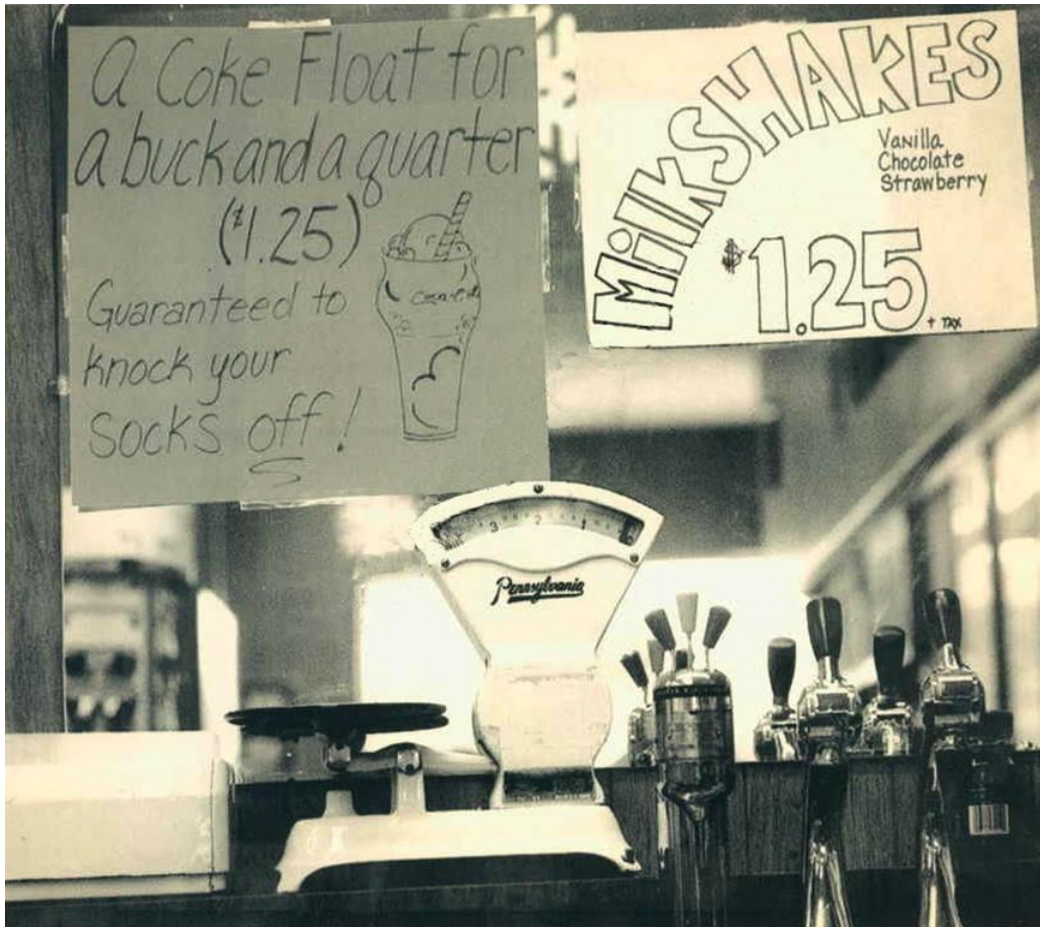 a Coke Float for
a buck and a quarter
($1.25)
Guaranteed to
knock your
socks off!
Coca-Cola
MilkSHAKES
Vanilla
Chocolate
Strawberry
$1.25
+ TAX
3 2 1
Pennsylvania